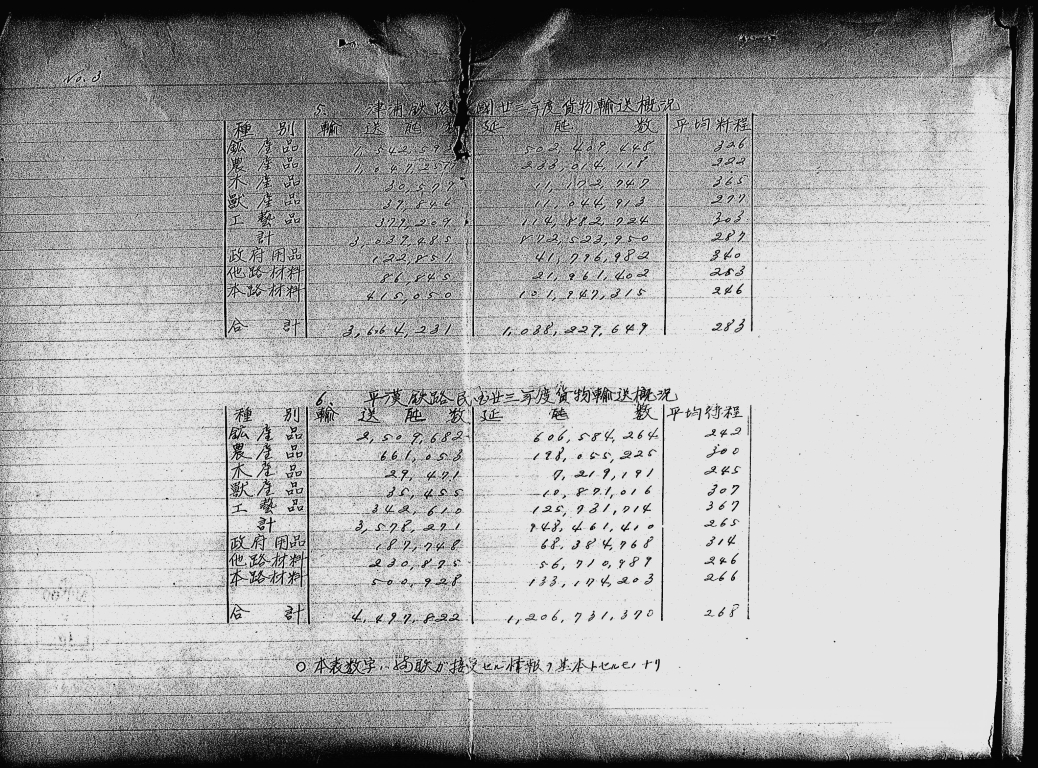 No. 3
5. 津浦鉄路 民國廿三年度貨物輸送概況
種別 輸送噸数 延噸数 平均粁程
鉱産品 1,542,59 502,439,448 326
農産品 1,049,25 233,014,118 222
木産品 30,577 11,172,747 365
獣産品 39,846 11,044,913 277
工藝品 379,209 114,882,724 303
計 3,039,485 872,523,950 287
政府用品 122,851 41,796,982 340
他路材料 86,845 21,961,402 253
本路材料 415,050 101,947,315 246
合計 3,664,231 1,038,229,649 283
6. 平漢鉄路民國廿三年度貨物輸送概況
種別 輸送噸数 延噸数 平均粁程
鉱産品 2,509,682 606,584,264 242
農産品 661,053 198,055,225 300
木産品 29,471 7,219,191 245
獣産品 35,455 10,871,016 307
工藝品 342,610 125,731,714 367
計 3,578,271 948,461,410 265
政府用品 187,748 68,384,768 314
他路材料 230,875 56,710,989 246
本路材料 500,928 133,174,203 266
合計 4,497,822 1,206,731,370 268
○本表数字ハ 接受セル情報ヲ基本トセルモノナリ